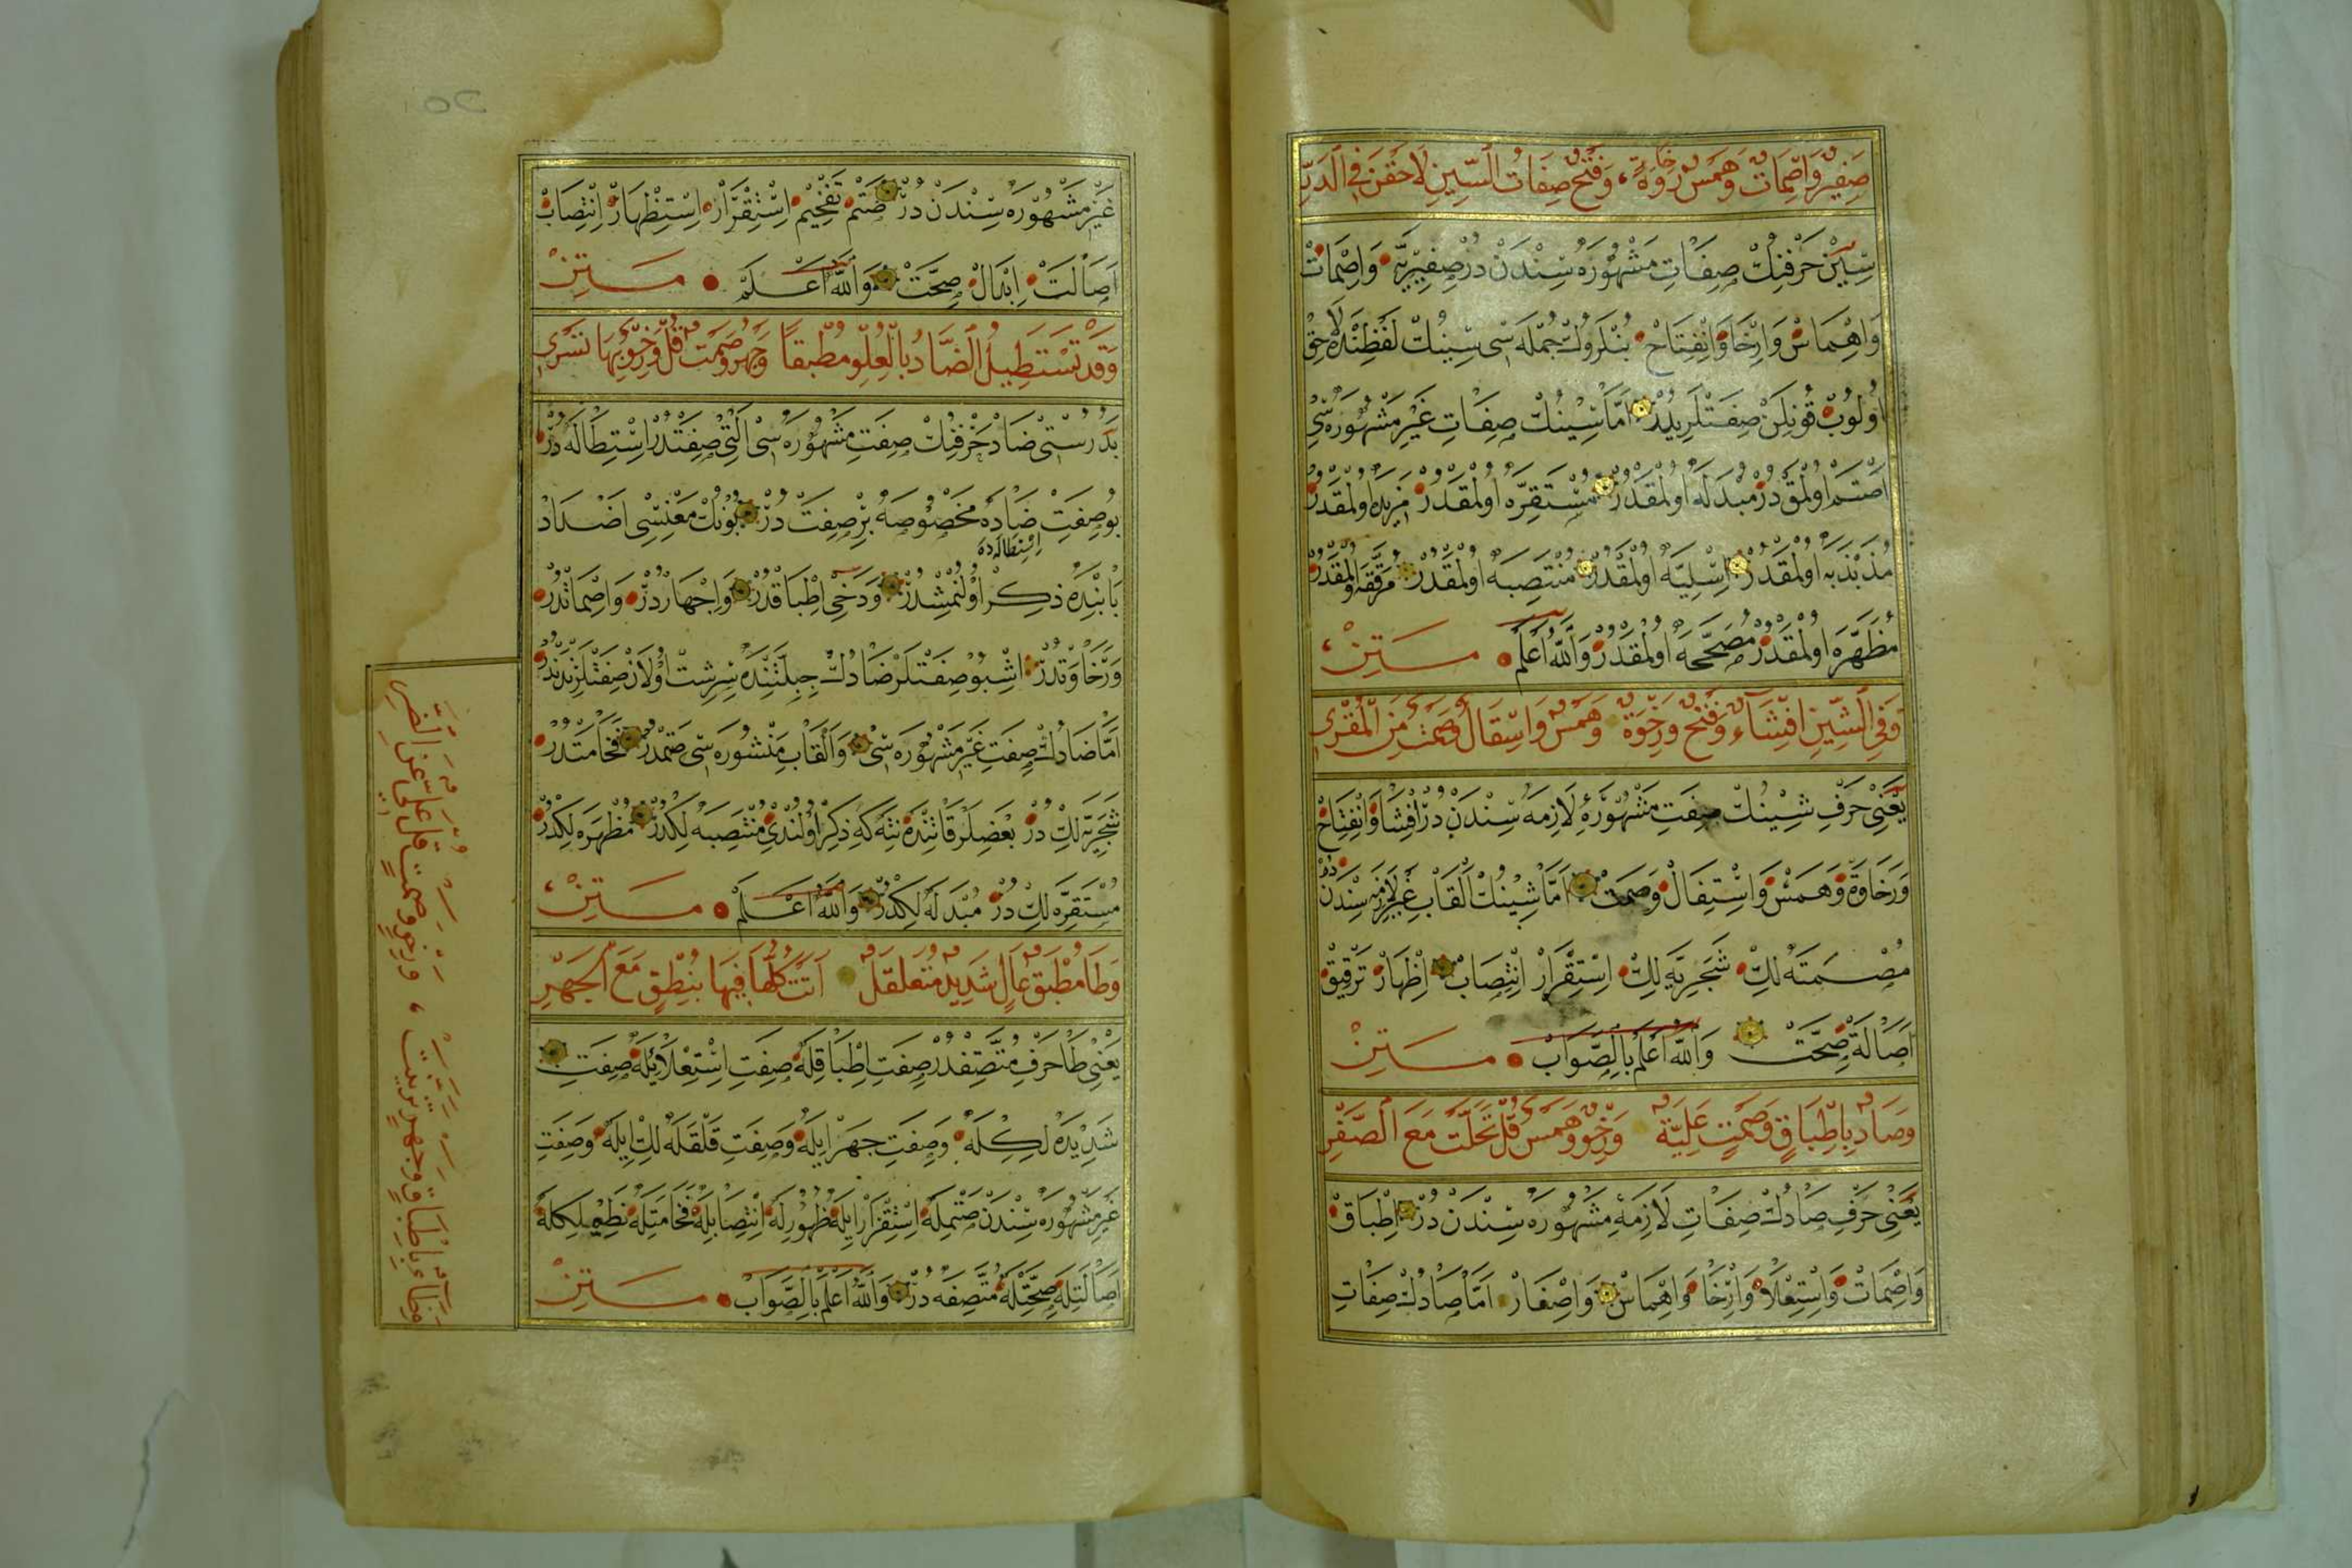 صَفِيرٌ وَاِصْمَاتٌ وَهَمْسٌ رِخَاوَةٌ ، وَفَتْحٌ صِفَاتُ السِّينِ لَاحَقْنَ فِي الَّدَ
سِينْ حَرْفِنِكْ صِفَاتِ مَشْهُورَه سِنْدَنْ دُرْ صَفِيرِيَّه وَاِصْمَاتْ
وَاِهْمَاسْ وَاِرْخَا وَاِنْفِتَاحْ بُنْلَرُوكْ جُمْلَه سِى سِينُكْ لَفْظِنَه لَاحِقْ
اُولُوبْ قُونِلَنْ صِفَتْلَرِيدُرْ اَمَّا سِينُكْ صِفَاتِ غَيْرِ مَشْهُورَه سِى
اَصْتَم اُولْمَقْدُرْ مُبْدَلَه اُولْمَقْدُرْ مُسْتَقِرَّه اُولْمَقْدُرْ مَزِيدَه اُولْمَقْدُرْ
مُذَبْذَبَه اُولْمَقْدُرْ اَسَلِيَّه اُولْمَقْدُرْ مُنْتَصِبَه اُولْمَقْدُرْ مُرَقَّقَه اُولْمَقْدُرْ
مُظَهَّرَه اُولْمَقْدُرْ مُصَحَّحَه اُولْمَقْدُرْ وَاللّٰهُ اَعْلَمُ مَتِنْ
وَفِي الشِّينِ اِفْشَاءٌ وَفَتْحٌ وَرِخْوَةٌ وَهَمْسٌ وَاسْتِفَالٌ وَصَمْتٌ مِنَ الْمُقْرِي
يَعْنِى حَرْفِ شِينُكْ صِفَتِ مَشْهُورَۀِ لَازِمَه سِنْدَنْ دُرْ اِفْشَا وَاِنْفِتَاحْ
وَرَخَاوَةْ وَهَمْسْ وَاِسْتِفَالْ وَصَمْتْ اَمَّا شِينُكْ اَلْقَابِ غَيْرِ لَازِمَه سِنْدَنْ دُرْ
مُصْمَتَه لِكْ شَجَرِيَّه لِكْ اِسْتِقْرَارْ اِنْتِصَابْ اِظْهَارْ تَرْقِيقْ
اَصَالَةْ صِحَّتْ وَاللّٰهُ اَعْلَمُ بِالصَّوَابْ مَتِنْ
وَصَادٌ بِاِطْبَاقٍ وَصَمْتٍ عَلِيَّةٌ وَرِخْوٍ وَهَمْسٍ قُلْ تَحَلَّتْ مَعَ الصَّفْرِ
يَعْنِى حَرْفِ صَادُكْ صِفَاتِ لَازِمَۀِ مَشْهُورَه سِنْدَنْ دُرْ اِطْبَاقْ
وَاِصْمَاتْ وَاِسْتِعْلَا وَاِرْخَا وَاِهْمَاسْ وَاِصْفَارْ اَمَّا صَادُكْ صِفَاتِ
غَيْرِ مَشْهُورَه سِنْدَنْ دُرْ صَتْمْ تَفْخِيمْ اِسْتِقْرَارْ اِسْتِظْهَارْ اِنْتِصَابْ
اَصَالَتْ اِبْدَالْ صِحَّتْ وَاللّٰهُ اَعْلَمْ مَتِنْ
وَقَدْ تَسْتَطِيلُ الضَّادُ بِالْعُلْوِ مُطْبَقًا وَجَهْرٌ وَصَمْتٌ قُلْ وَرِخْوٌ بِهَا تَسْرِي
بَدُرُسْتِى ضَادْ حَرْفِنِكْ صِفَتِ مَشْهُورَه سِى اَلْتِى صِفَتْدُرْ اِسْتِطَالَه دُرْ
بُو صِفَتْ ضَادَه مَخْصُوصَه بِرْ صِفَتْ دُرْ بُونُكْ مَعْنِسِى اَضْدَادْ
اِسْتِطَالَه ده
بَابِنْدَه ذِكِرْ اُولُنْمِشْدُرْ وَدَخِى اِطْبَاقْدُرْ وَاِجْهَارْدُرْ وَاِصْمَاتْدُرْ
وَرَخَاوَتْدُرْ اِشْبُو صِفَتْلَرْ ضَادُكْ جِبِلَّتِنْدَه سِرِشْتْ اُولَانْ صِفَتْلَرْنَنْدُرْ
اَمَّا ضَادُكْ صِفَتِ غَيْرِ مَشْهُورَه سِى وَاَلْقَابِ مَنْشُورَه سِى صَتْمْدُرْ فَخَامَتْدُرْ
شَجَرِيَّه لِكْ دُرْ بَعْضِلَرْ قَاتِنْدَه نِتَه كِه ذِكِرْ اُولُنْدِى مُنْتَصِبَه لِكْدُرْ مُظْهَرَه لِكْدُرْ
مُسْتَقِرَّه لِكْ دُرْ مُبْدَلَه لِكْدُرْ وَاللّٰهُ اَعْلَمْ مَتِنْ
وَطَا مُطْبَقٌ عَالٍ شَدِيدٌ مُقَلْقَلٌ اَتَتْ كُلُّهَا فِيهَا بِنُطْقٍ مَعَ الْجَهْرِ
يَعْنِى طَا حَرْفِ مُتَّصِفْدُرْ صِفَتِ اِطْبَاقِلَه صِفَتِ اِسْتِعْلَائِلَه صِفَتِ
شَدِيدَه لِكِلَه وَصِفَتِ جَهْرْ اِيلَه وَصِفَتِ قَلْقَلَه لِكْ اِيلَه وَصِفَتِ
غَيْرِ مَشْهُورَه سِنْدَنْ صَتْمِلَه اِسْتِقْرَارْ اِيلَه ظُهُورِلَه اِنْتِصَابِلَه فَخَامَتِلَه نَطْعِيَّه لِكِلَه
اَصَالَتِلَه صِحَّتِلَه مُتَّصِفَه دُرْ وَاللّٰهُ اَعْلَمُ بِالصَّوَابْ مَتِنْ
وَظَاءٌ بِاِطْبَاقٍ وَجَهْرٍ تَرَتَّبَتْ ، وَرِخْوٍ وَصَمْتٍ قُلْ عَلِيٌّ عَنِ